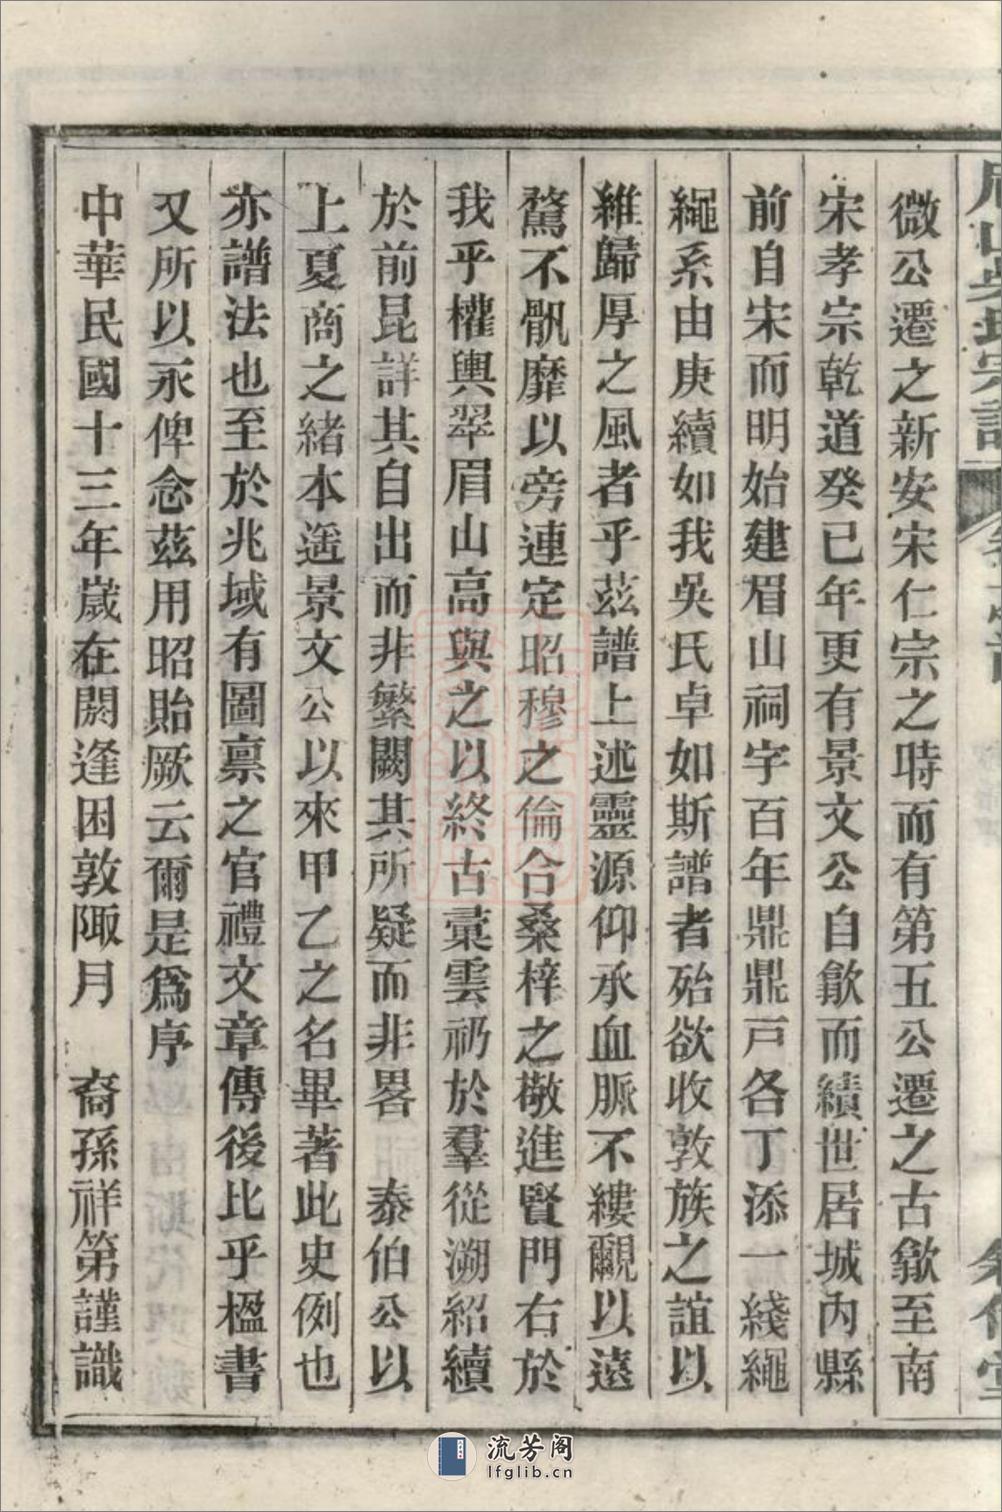 微公遷之新安宋仁宗之時而有第五公遷之古歙至南
宋孝宗乾道癸巳年更有景文公自歙而績世居城內縣
前自宋而明始建眉山祠宇百年鼎鼎戸各丁添一綫繩
繩系由庚續如我吳氏卓如斯譜者殆欲收敦族之誼以
維歸厚之風者乎茲譜上述靈源仰承血脈不縷覼以遠
騖不骩靡以旁連定昭穆之倫合桑梓之敬進賢門右於
我乎權輿翠眉山高與之以終古彙雲礽於羣從溯紹續
於前昆詳其自出而非繁闕其所疑而非畧　泰伯公以
上夏商之緒本遥景文公以來甲乙之名畢著此史例也
亦譜法也至於兆域有圖禀之官禮文章傳後比乎楹書
又所以永俾念茲用昭貽厥云爾是爲序
中華民國十三年歲在閼逢困敦陬月　裔孫祥第謹識
眉山吳氏宗譜
流芳阁
lfglib.cn